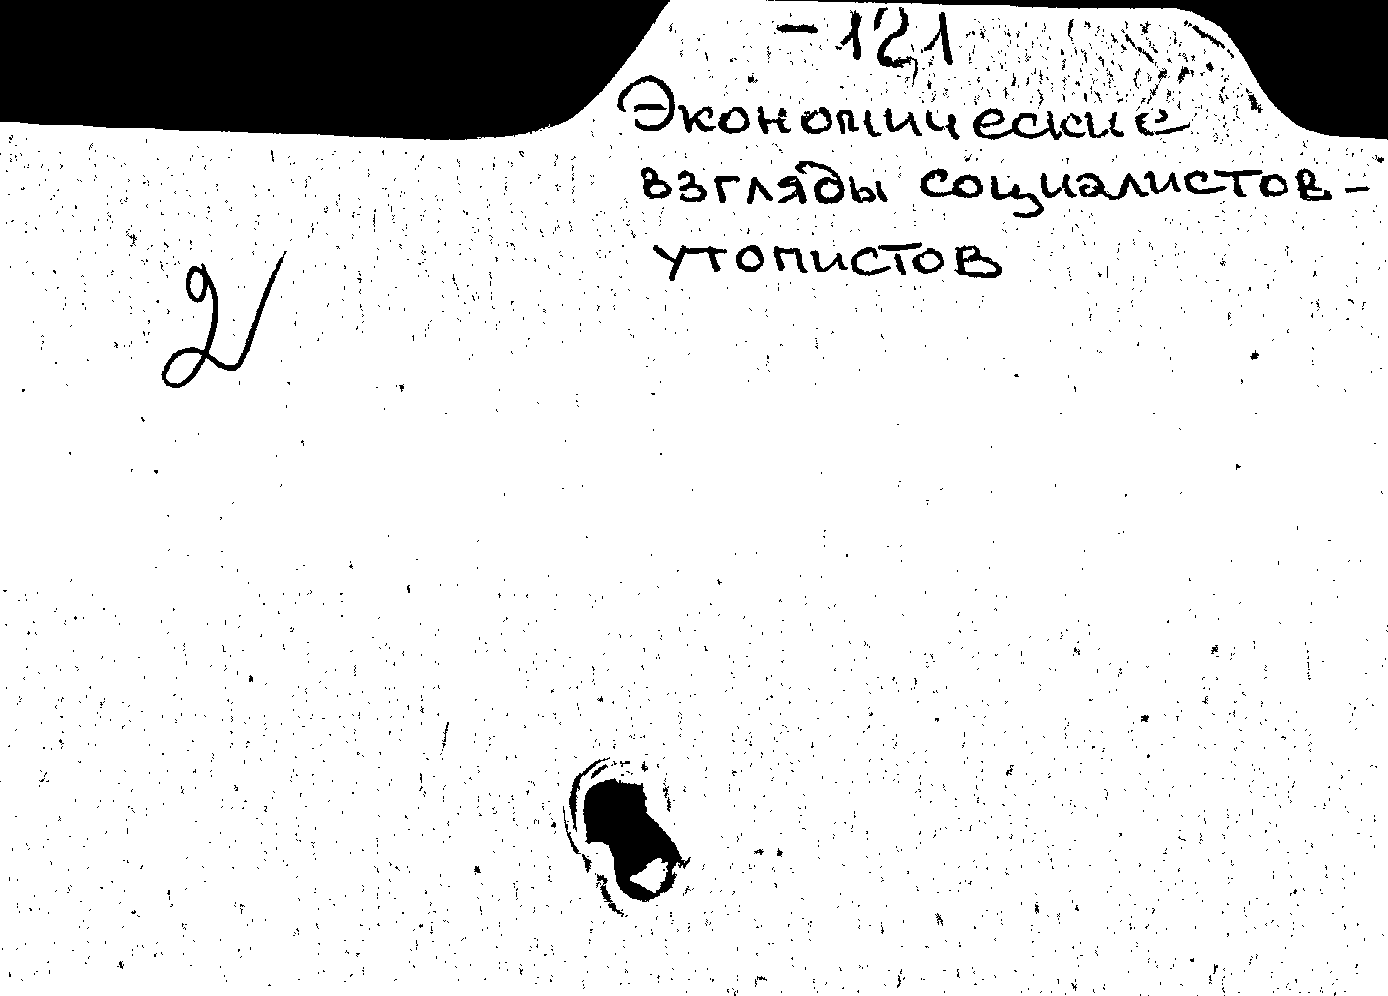 -121
Экономические
взгляды социалистов-
утопистов
2